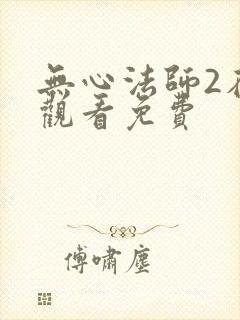 無心法師2
觀看免費
傅嘯塵